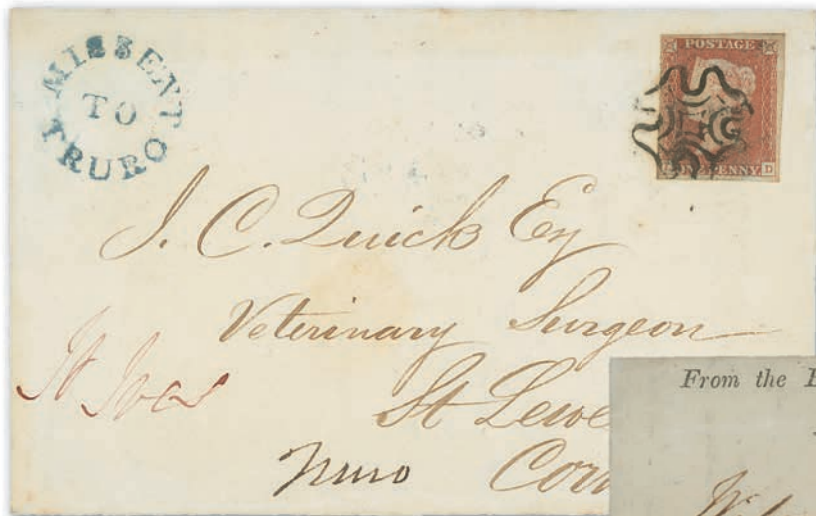 MISSENT
TO
TRURO
POSTAGE
PENNY D
J. C. Quick Esq
Veterinary Surgeon
St Ives
St
Truro
From the